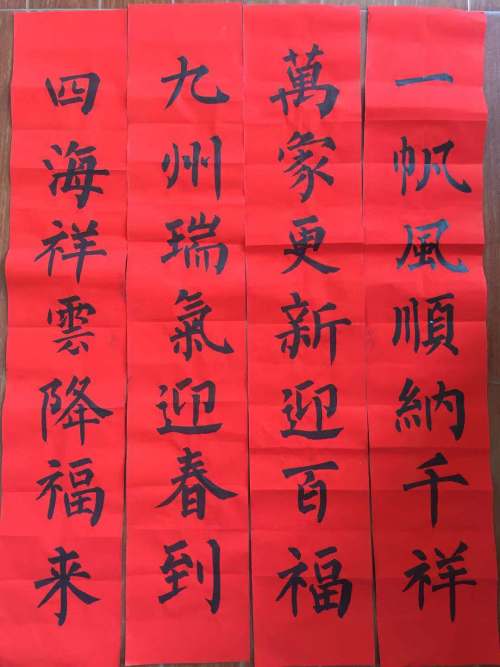 一帆風順納千祥
萬家更新迎百福
九州瑞氣迎春到
四海祥雲降福来